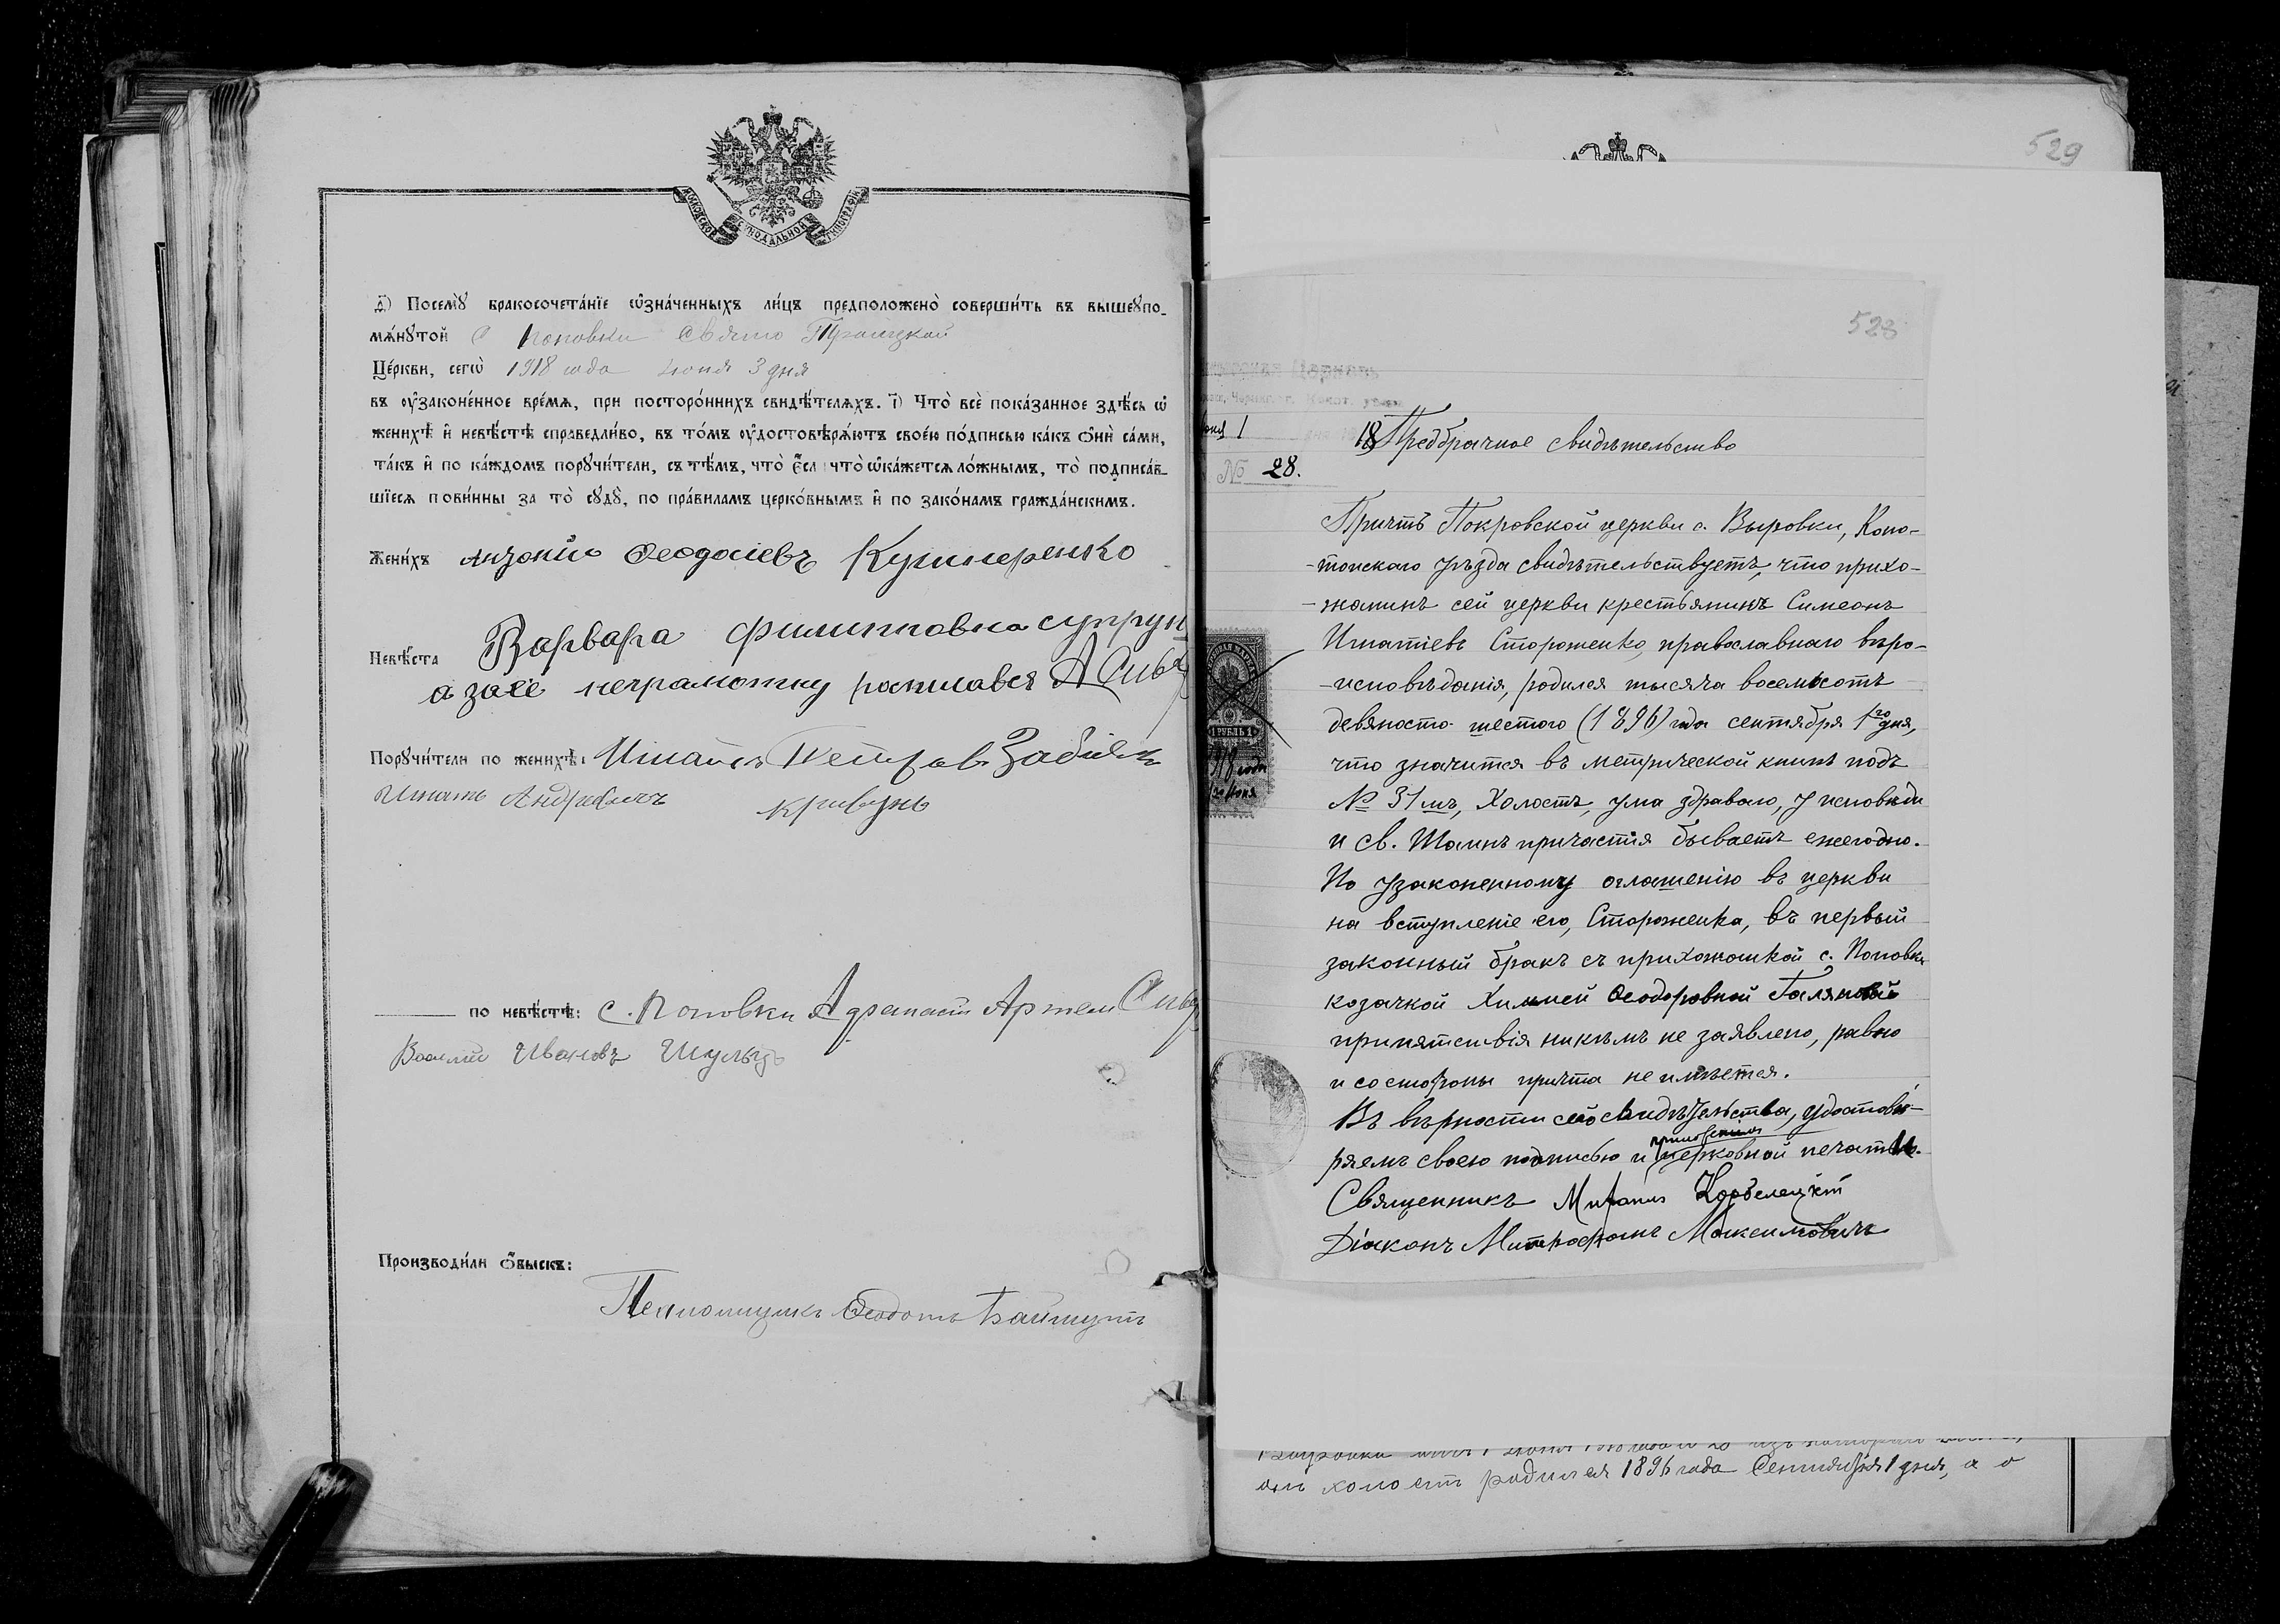 МОСКОВСКОЙ СѴНОДАЛЬНОЙ ТИПОГРАФІИ
д҃) Посемꙋ̀ бракосочета́нїе ѡ҆зна́ченныхъ ли́цъ предположено̀ соверши́ть въ вышеꙋпо-
мѧ́нꙋтой с Поповки Свято Троицкой
Це́ркви, сегѡ̀ 1918 года Іюня 3 дня
въ ᲂу҆законе́нное вре́мѧ, при посторо́ннихъ свидѣ́телѧхъ. і҃) Что̀ всѐ пока́занное здѣ́сь ѡ҆
женихѣ̀ и҆ невѣ́стѣ справедли́во, въ то́мъ ᲂу҆достовѣрѧ́ютъ свое́ю по́дписью ка́къ ѻ҆нѝ са́ми,
та́къ и҆ по ка́ждомъ порꙋчи́тели, съ тѣ́мъ, что̀ є҆́сл что̀ ѡ҆ка́жетсѧ ло́жнымъ, то̀ подписа́в-
шїесѧ пови́нны за то̀ сꙋдꙋ̀, по пра́виламъ церко́внымъ и҆ по зако́намъ гражда́нскимъ.
Жени́хъ Антоній Ѳеодосіевъ Кушнеренко
Невѣ́ста Варвара Филипповна Супрун
а за ее неграмотну росписався А
Порꙋчи́тели по женихѣ̀: Игнатъ Петров Забіяк
Игнатъ Андреевичъ Кривунъ
по невѣ́стѣ: с. Поповки Артем
Василій Ивановъ Шульга
Производи́ли ѻ҆́быскъ:
Псаломщикъ Ѳеодотъ
529
528
Церковь
Іюня 1
№ 28.
1 РУБЛЬ 1
1918 года
Іюня
Предбрачное свидѣтельство
Причтъ Покровской церкви с. Выровки, Коно-
-топскаго уѣзда свидѣтельствуетъ, что прихо-
-жанинъ сей церкви крестьянинъ Симеонъ
Игнатіевъ Стороженко, православнаго вѣро-
-исповѣданія, родился тысяча восемьсотъ
девяносто шестого (1896) года сентября 1го дня,
что значится въ метрической книгѣ подъ
№ 31мъ, Холостъ, ума здраваго, у исповѣди
и св. Таинъ причастія бываетъ ежегодно.
По узаконенному оглашенію въ церкви
на вступленіе его, Стороженка, въ первый
законный бракъ съ прихожанкой с. Поповки
козачкой Химіей Ѳеодоровной
препятствія никѣмъ не заявлено, равно
и со стороны причта не имѣется.
Въ вѣрности сего свидѣтельства, удостовѣ-
ряемъ своею подписью и приложеніемъ церковной печати.
Священникъ
Діаконъ Митрофанъ Максимовичъ
онъ холостъ родился 1896 года Сентября 1 дня, а о